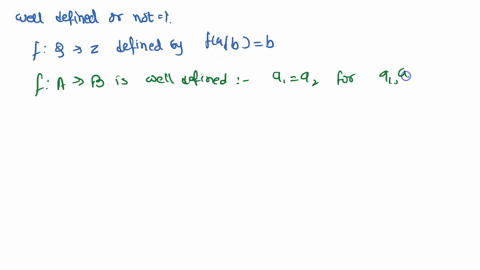 well defined or not =?
f: Q → Z defined by f(a/b) = b
f: A → B is well defined :- a₁ = a₂ for a₁, a